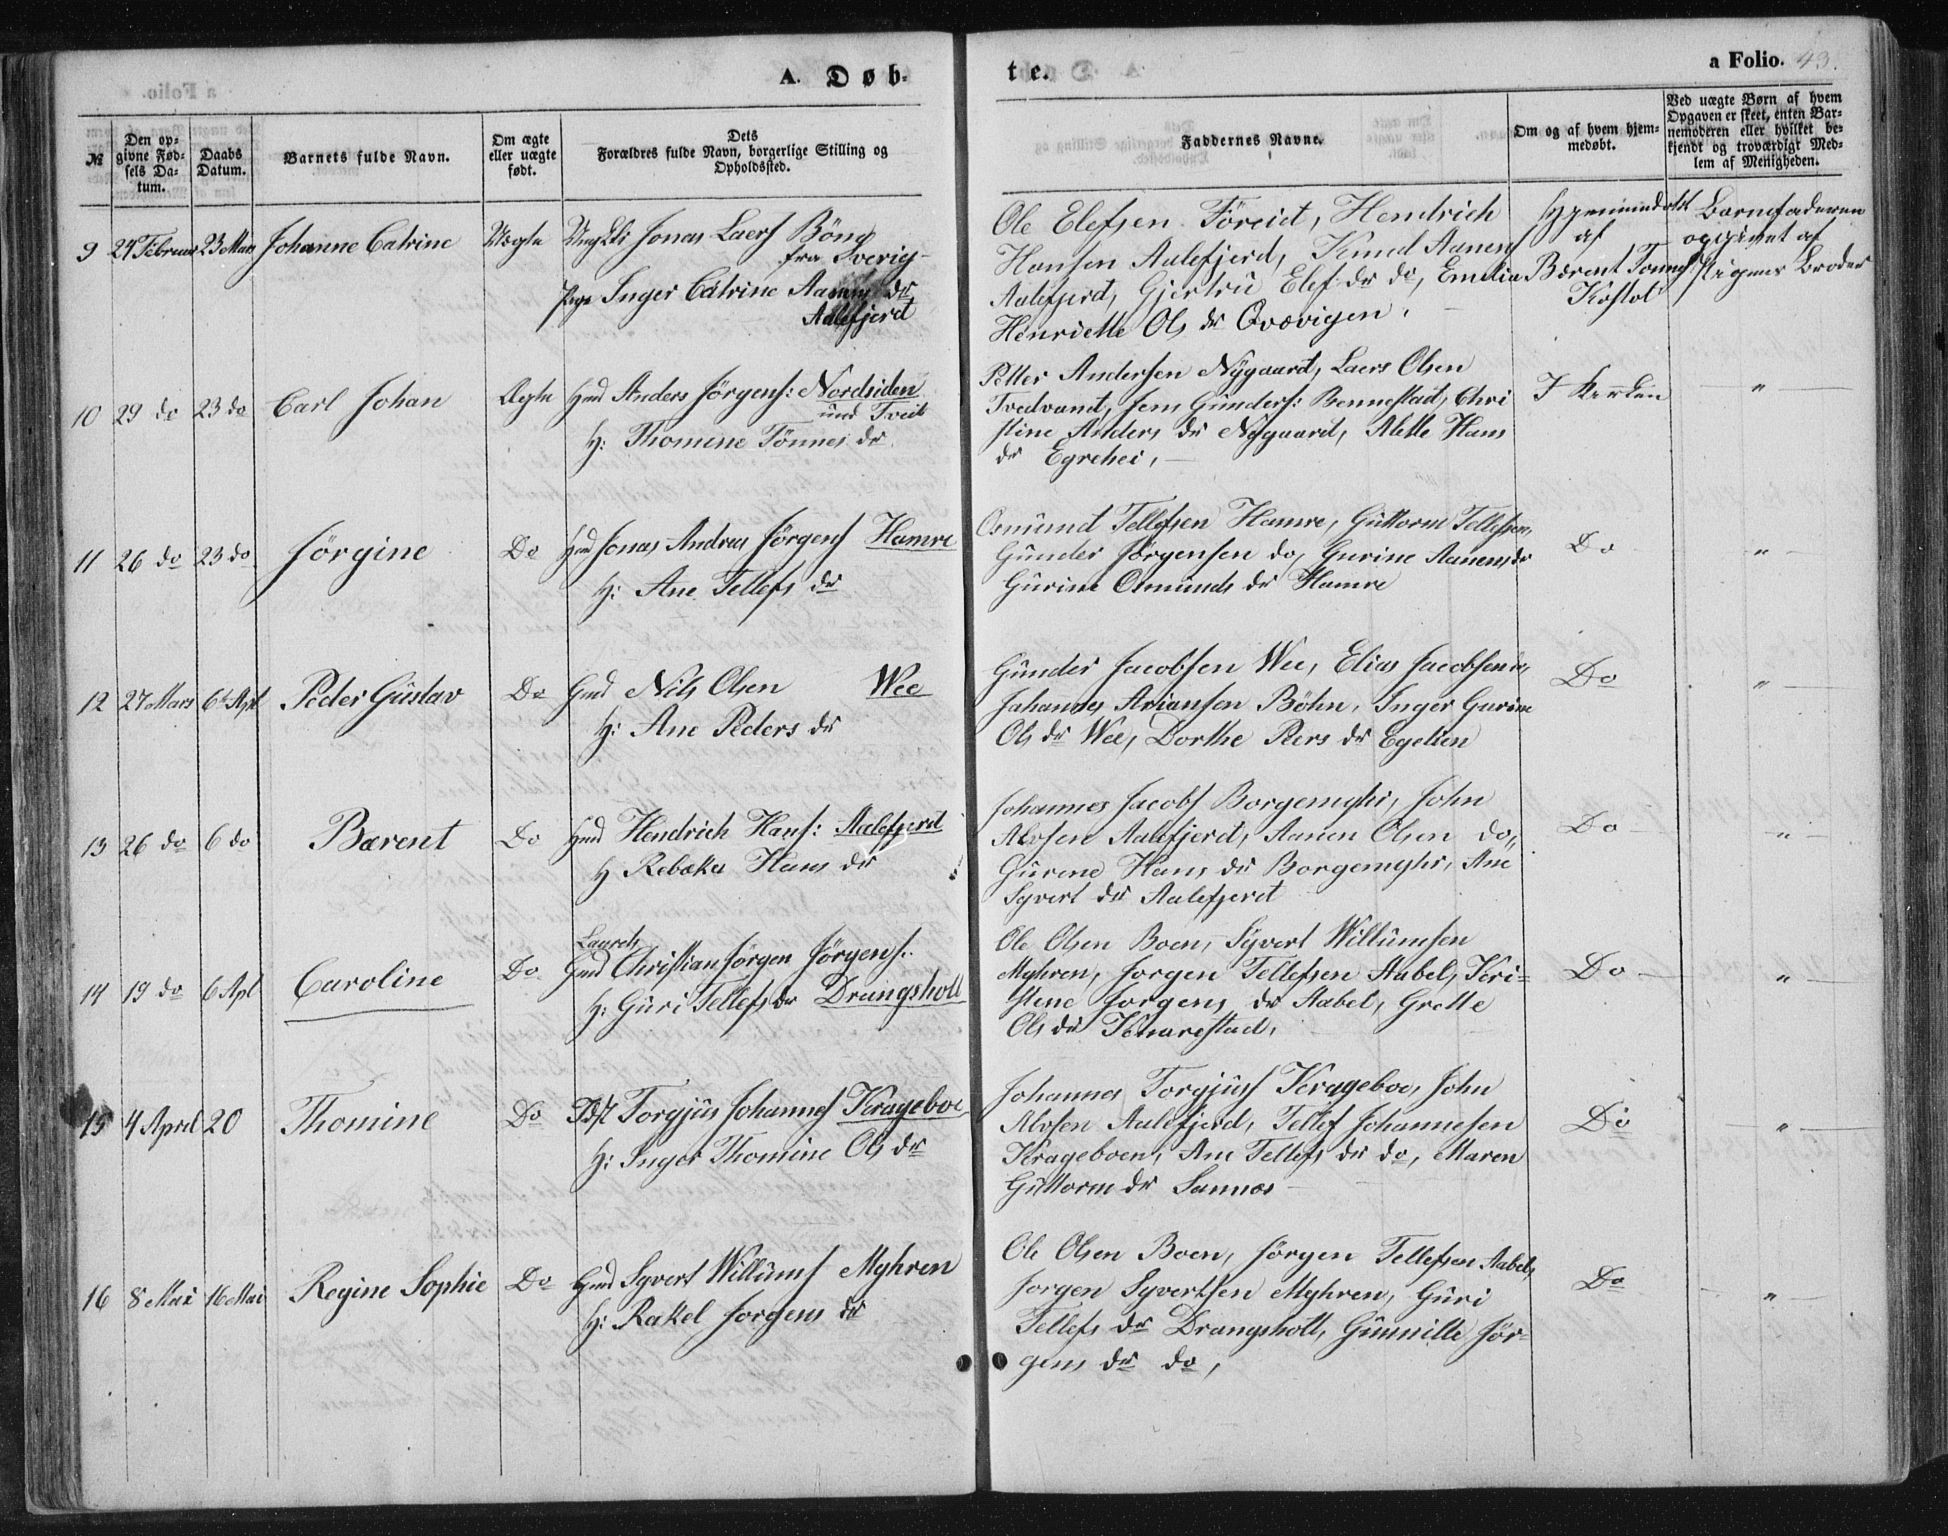 A. Døb-
te.
a Folio. 43.
№
Den op-
givne Fød-
sels Da-
tum.
Daabs
Datum.
Barnets fulde Navn.
Om ægte
eller uægte
født.
Dets
Forældres fulde Navn, borgerlige Stilling og
Opholdssted.
Faddernes Navne.
Om og af hvem hjem-
medøbt.
Ved uægte Børn af hvem
Opgaven er skeet, enten Bar-
nemoderen eller hvilket be-
kjendt og troværdigt Med-
lem af Menigheden.
9 24 Februar 23 Mars Johanne Catrine Uægte Jonas Laers Böng
fra Sverig
Pige Inger Catrine Aanens dr
Aalefjerd
Ole Elefsen Föreid, Hendrich
Hansen Aalefjerd, Knud Aanens
Aalefjerd, Gjertru Elefs dr do, Emelia
Henriette Ols dr Qvævigen,
Hjemmedøbt
af
Bærent Tønnes
Kostøl
Barnefaderen
opgivet af
Pigens Broder
10 29 do 23 do Carl Johan Ægte Gmd Anders Jørgens: Nordsiden
und Tveit
H: Thomine Tønnes dr
Petter Andersen Nygaard, Laers Olsen
Tvedvand, Jens Gunders: Bennestad, Chri
stine Anders dr Nygaard, Alette Hans
dr Egrehei,
I Kirken
"
11 26 do 23 do Jørgine Do Gmd Jonas Andreas Jørgens Hamre
H: Ane Tellefs dr
Osmund Tellefsen Hamre, Guttorm Tellefsen,
Gunder Jørgensen do, Gurine Aanens dr
Gurine Osmunds dr Hamre
Do
"
12 27 Mars 6te Apl Peder Gustav Do Gmd Nils Olsen Wee
H: Ane Peders dr
Gunder Jacobsen Wee, Elias Jacobsen do,
Johannes Ariansen Böhn, Inger Gurine
Ols dr Wee, Dorthe Peers dr Egelien
Do
"
13 26 do 6 do Bærent Do Gmd Hendrich Hans: Aalefjerd
H Rebekka Hans dr
Johannes Jacobs Borgemyhr, John
Alvsen Aalefjerd, Aanen Olsen do,
Gurene Hans dr Borgemyhr, Ane
Syvert dr Aalefjerd
Do
"
14 19 do 6 Apl Caroline Do Laurets
Gmd Christian Jörgen Jörgens:
H: Guri Tellefs dr Drangsholt
Ole Olsen Boen, Syvert Willumsen
Myhren, Jorgen Tellefsen Stabel, Kri-
stene Jorgens dr Stabel, Grette
Ols dr Kenarestad,
Do
"
15 4 April 20 Thomine Do Torgjus Johannes Krageboe
H: Inger Thomine Ols dr
Johannes Torgjus Krageboe, John
Alvsen Aalefjerd, Tellef Johannesen
Krageboen, Ane Tellefs dr do, Maren
Guttorm dr Sannes
Do
"
16 8 Mai 16 Mai Regine Sophie Do Gmd Syvert Willums Myhren
H: Rakel Jorgens dr
Ole Olsen Boen, Jørgen Tellefsen Stabel,
Jorgen Syvertsen Myhren, Guri
Tellefs dr Drangsholt, Gunnille Jør-
gens dr do,
Do
"